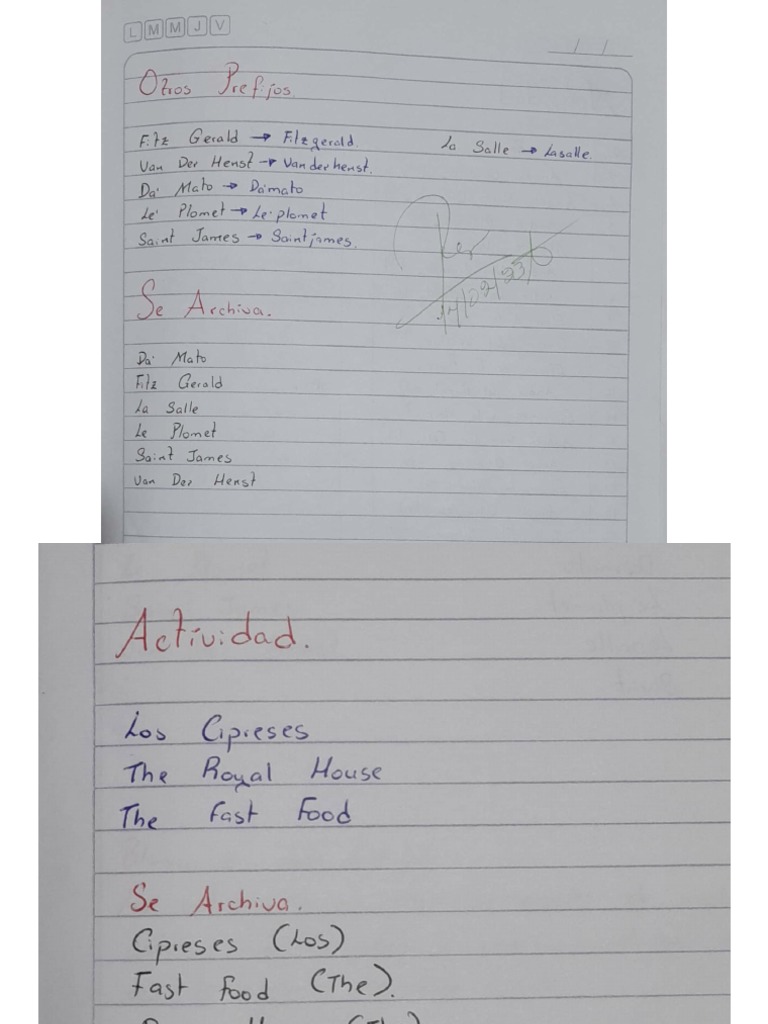 L M M J V
/ /
Otros Prefijos.
Fitz Gerald → Fitzgerald.
La Salle → Lasalle.
Van Der Henst → Vanderhenst.
Da' Mato → Da'mato
Le' Plomet → Le'plomet
Saint James → Saintjames.
14/02/23
Se Archiva.
Da' Mato
Fitz Gerald
La Salle
Le Plomet
Saint James
Van Der Henst
Actividad.
Los Cipreses
The Royal House
The Fast Food
Se Archiva.
Cipreses (Los)
Fast Food (The).